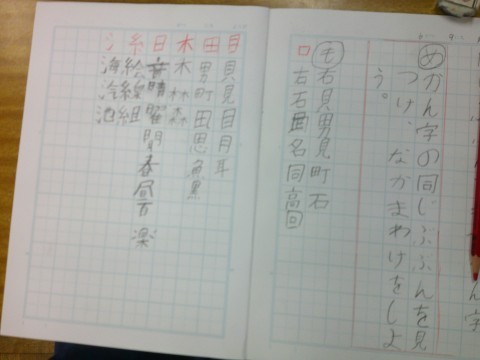 めかん字の同じぶぶんを見
つけ、なかまわけをしよ
う。
も右貝男見町石
口右石囲名同高回
目貝見目月耳
田男町田思魚黒
木木林森
日音晴曜間春昼百楽
糸絵線組
氵海池